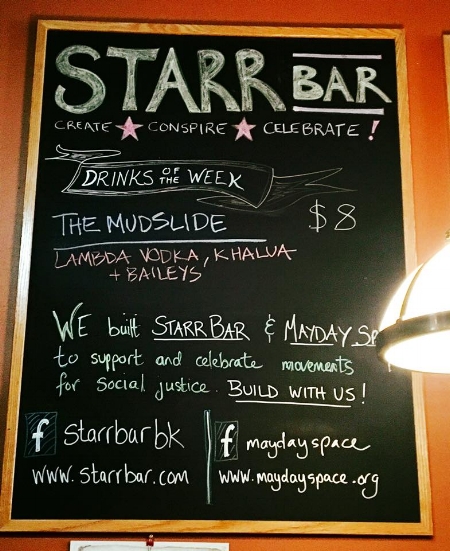 STARR BAR
CREATE ★ CONSPIRE ★ CELEBRATE!
DRINKS OF THE WEEK
THE MUDSLIDE $8
LAMBDA VODKA, KHALUA
+ BAILEYS
WE built STARR BAR & MAYDAY SP
to support and celebrate movements
for social justice. BUILD WITH US!
f Starrbarbk
f maydayspace
www.starrbar.com
www.maydayspace.org